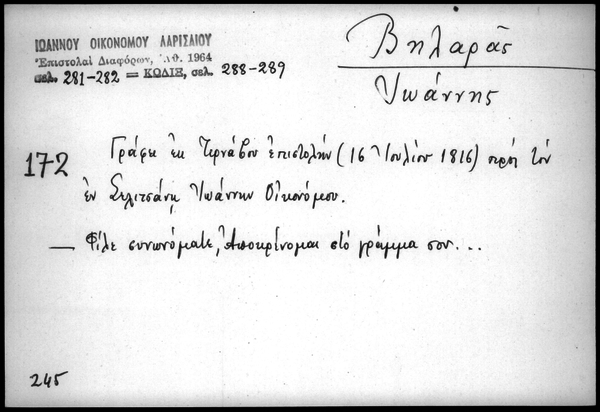 ΙΩΑΝΝΟΥ ΟΙΚΟΝΟΜΟΥ ΛΑΡΙΣΑΙΟΥ
Ἐπιστολαὶ Διαφόρων, Ἀθ. 1964
σελ. 281-282 = ΚΩΔΙΞ, σελ. 288-289
Βηλαρᾶς
Ἰωάννης
172
Γράφει ἐκ Τερνάβου ἐπιστολὴν (16 Ἰουλίου 1816) πρὸς τὸν
ἐν Σελιτσάνῃ Ἰωάννην Οἰκονόμου.
— Φίλε συνωνόματε, Ἀποκρίνομαι στὸ γράμμα σου...
245